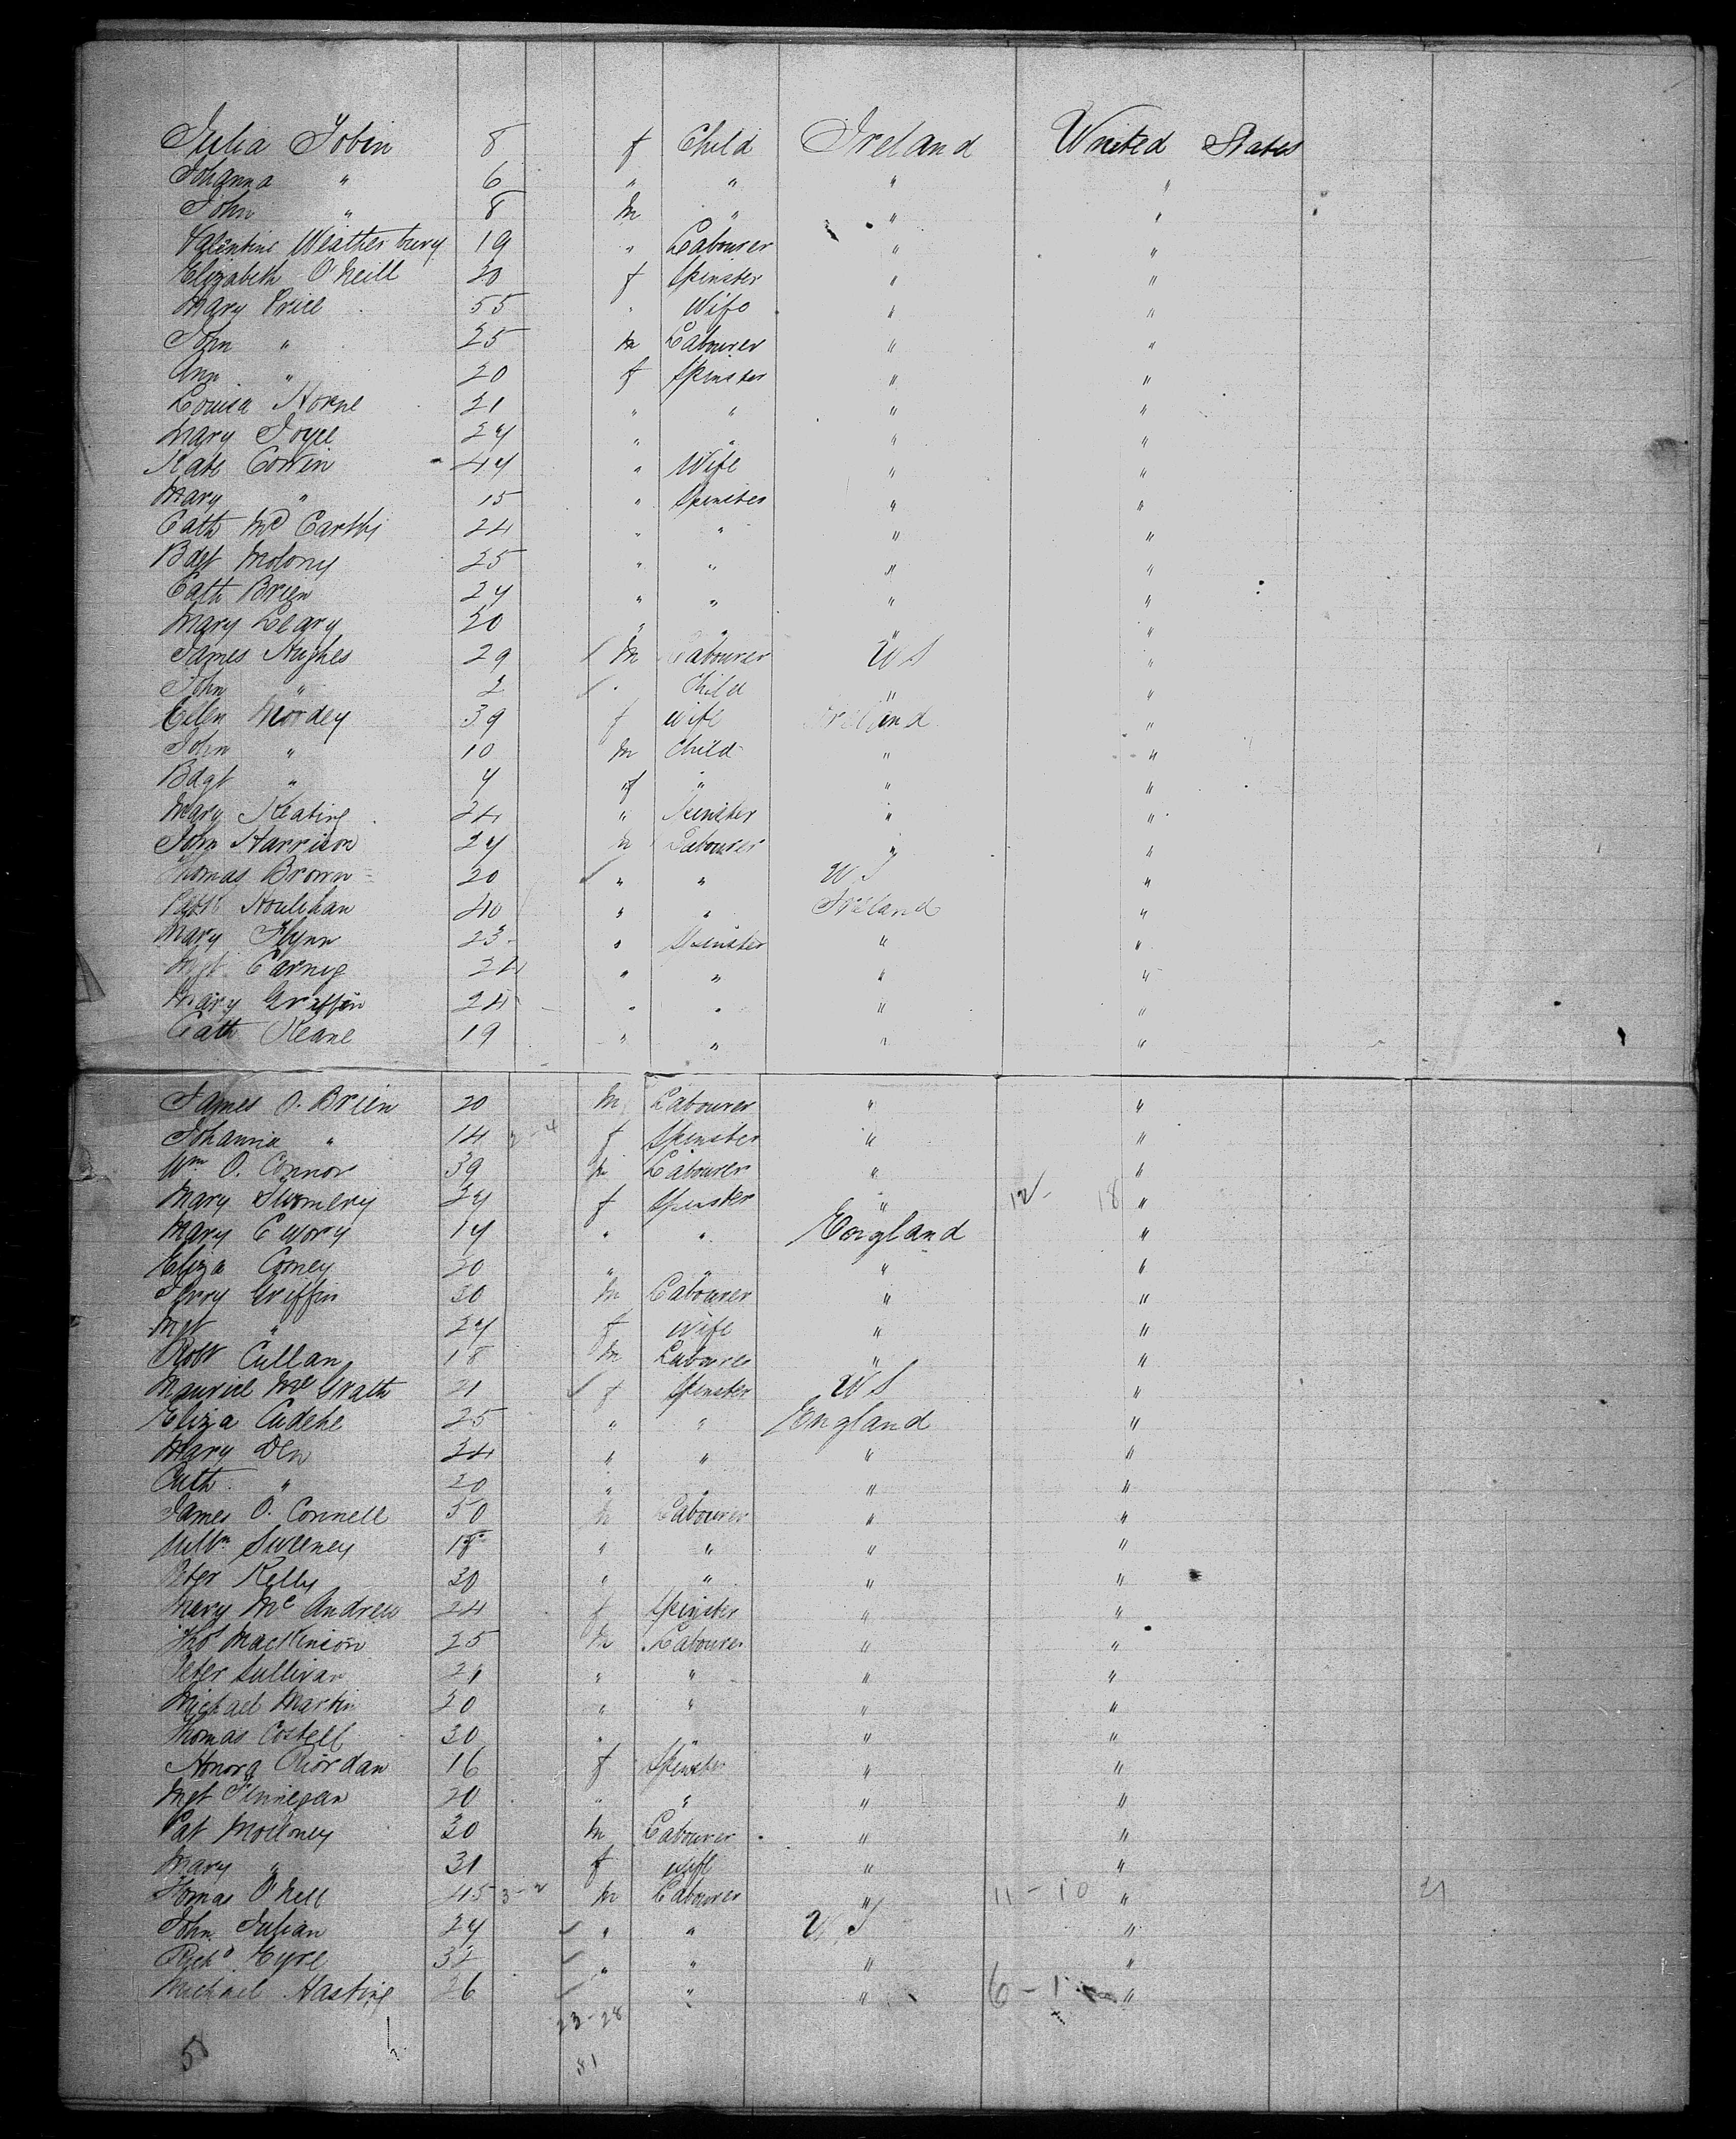 Julia Tobin 8 f Child Ireland United States
Johanna " 6 " " " "
John " 8 m " " "
Valentine Weatherbury 19 " Labourer " "
Elizabeth O'Neill 20 f Spinster " "
Mary Price 55 " Wife " "
John " 25 m Labourer " "
Ann " 20 f Spinster " "
Louisa Horne 21 " " " "
Mary Joyce 24 " " " "
Kate Corwin 44 " Wife " "
Mary " 15 " Spinster " "
Cath McCarthy 24 " " " "
Bdgt Molony 25 " " " "
Cath Brien 24 " " " "
Mary Leary 20 " " " "
James Hughes 29 m Labourer US "
John " 2 " Child " "
Ellen 39 f wife Ireland "
John " 10 m Child " "
Bdgt " 4 f " " "
Mary Keating 24 " Spinster " "
John Harrison 24 m Labourer " "
Thomas Brown 20 " " US "
Houlihan 40 " " Ireland "
Mary Flynn 23 " Spinster " "
Mgt 24 " " " "
Mary Griffin 24 " " " "
Cath Keane 19 " " " "
James O. Brien 20 m Labourer " "
Johanna " 14 f Spinster " "
Wm O. Connor 39 m Labourer " "
Mary 24 f Spinster " 12 - 18 "
Mary 14 " " England "
Eliza Comey 20 " " " "
Griffin 30 m Labourer " "
Mgt " 24 f wife " "
Robt Cullan 18 m Labourer " "
Maurice McGrath 21 f Spinster US "
Eliza 25 " " England "
Mary 24 " " " "
Cath " 20 " " " "
James O. Connell 50 m Labourer " "
Sweeney 18 " " " "
Peter Kelly 30 " " " "
Mary McAndrew 24 f Spinster " "
Thos MacKinson 25 m Labourer " "
Peter Sullivan 21 " " " "
Michael Martin 20 " " " "
Thomas Costell 30 " " " "
Honora Riordan 16 f Spinster " "
Mgt Finnegan 20 " " " "
Pat Molloney 30 m Labourer " "
Mary " 31 f wife " "
Thomas O'Nell 45 m Labourer " 11 - 10 " 21
John Julian 24 " " US "
Richd Eyre 32 " " " "
Michael Hasting 26 " " 6 - 1 "
23-28
5